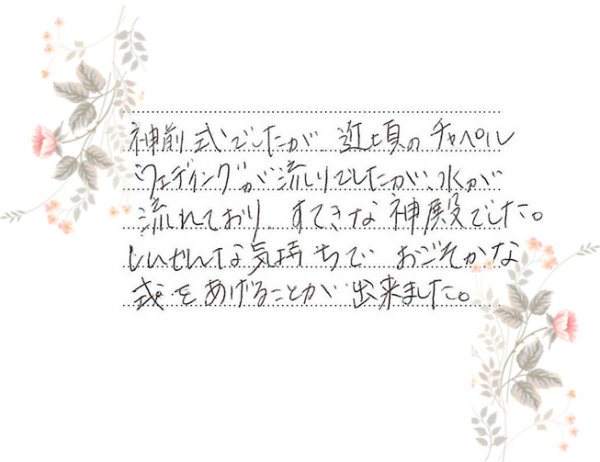 神前式でしたが 近頃のチャペル
ウェディングが流りでしたが、水が
流れており、すてきな神殿でした。
しんせんな気持ちで おごそかな
式をあげることが出来ました。